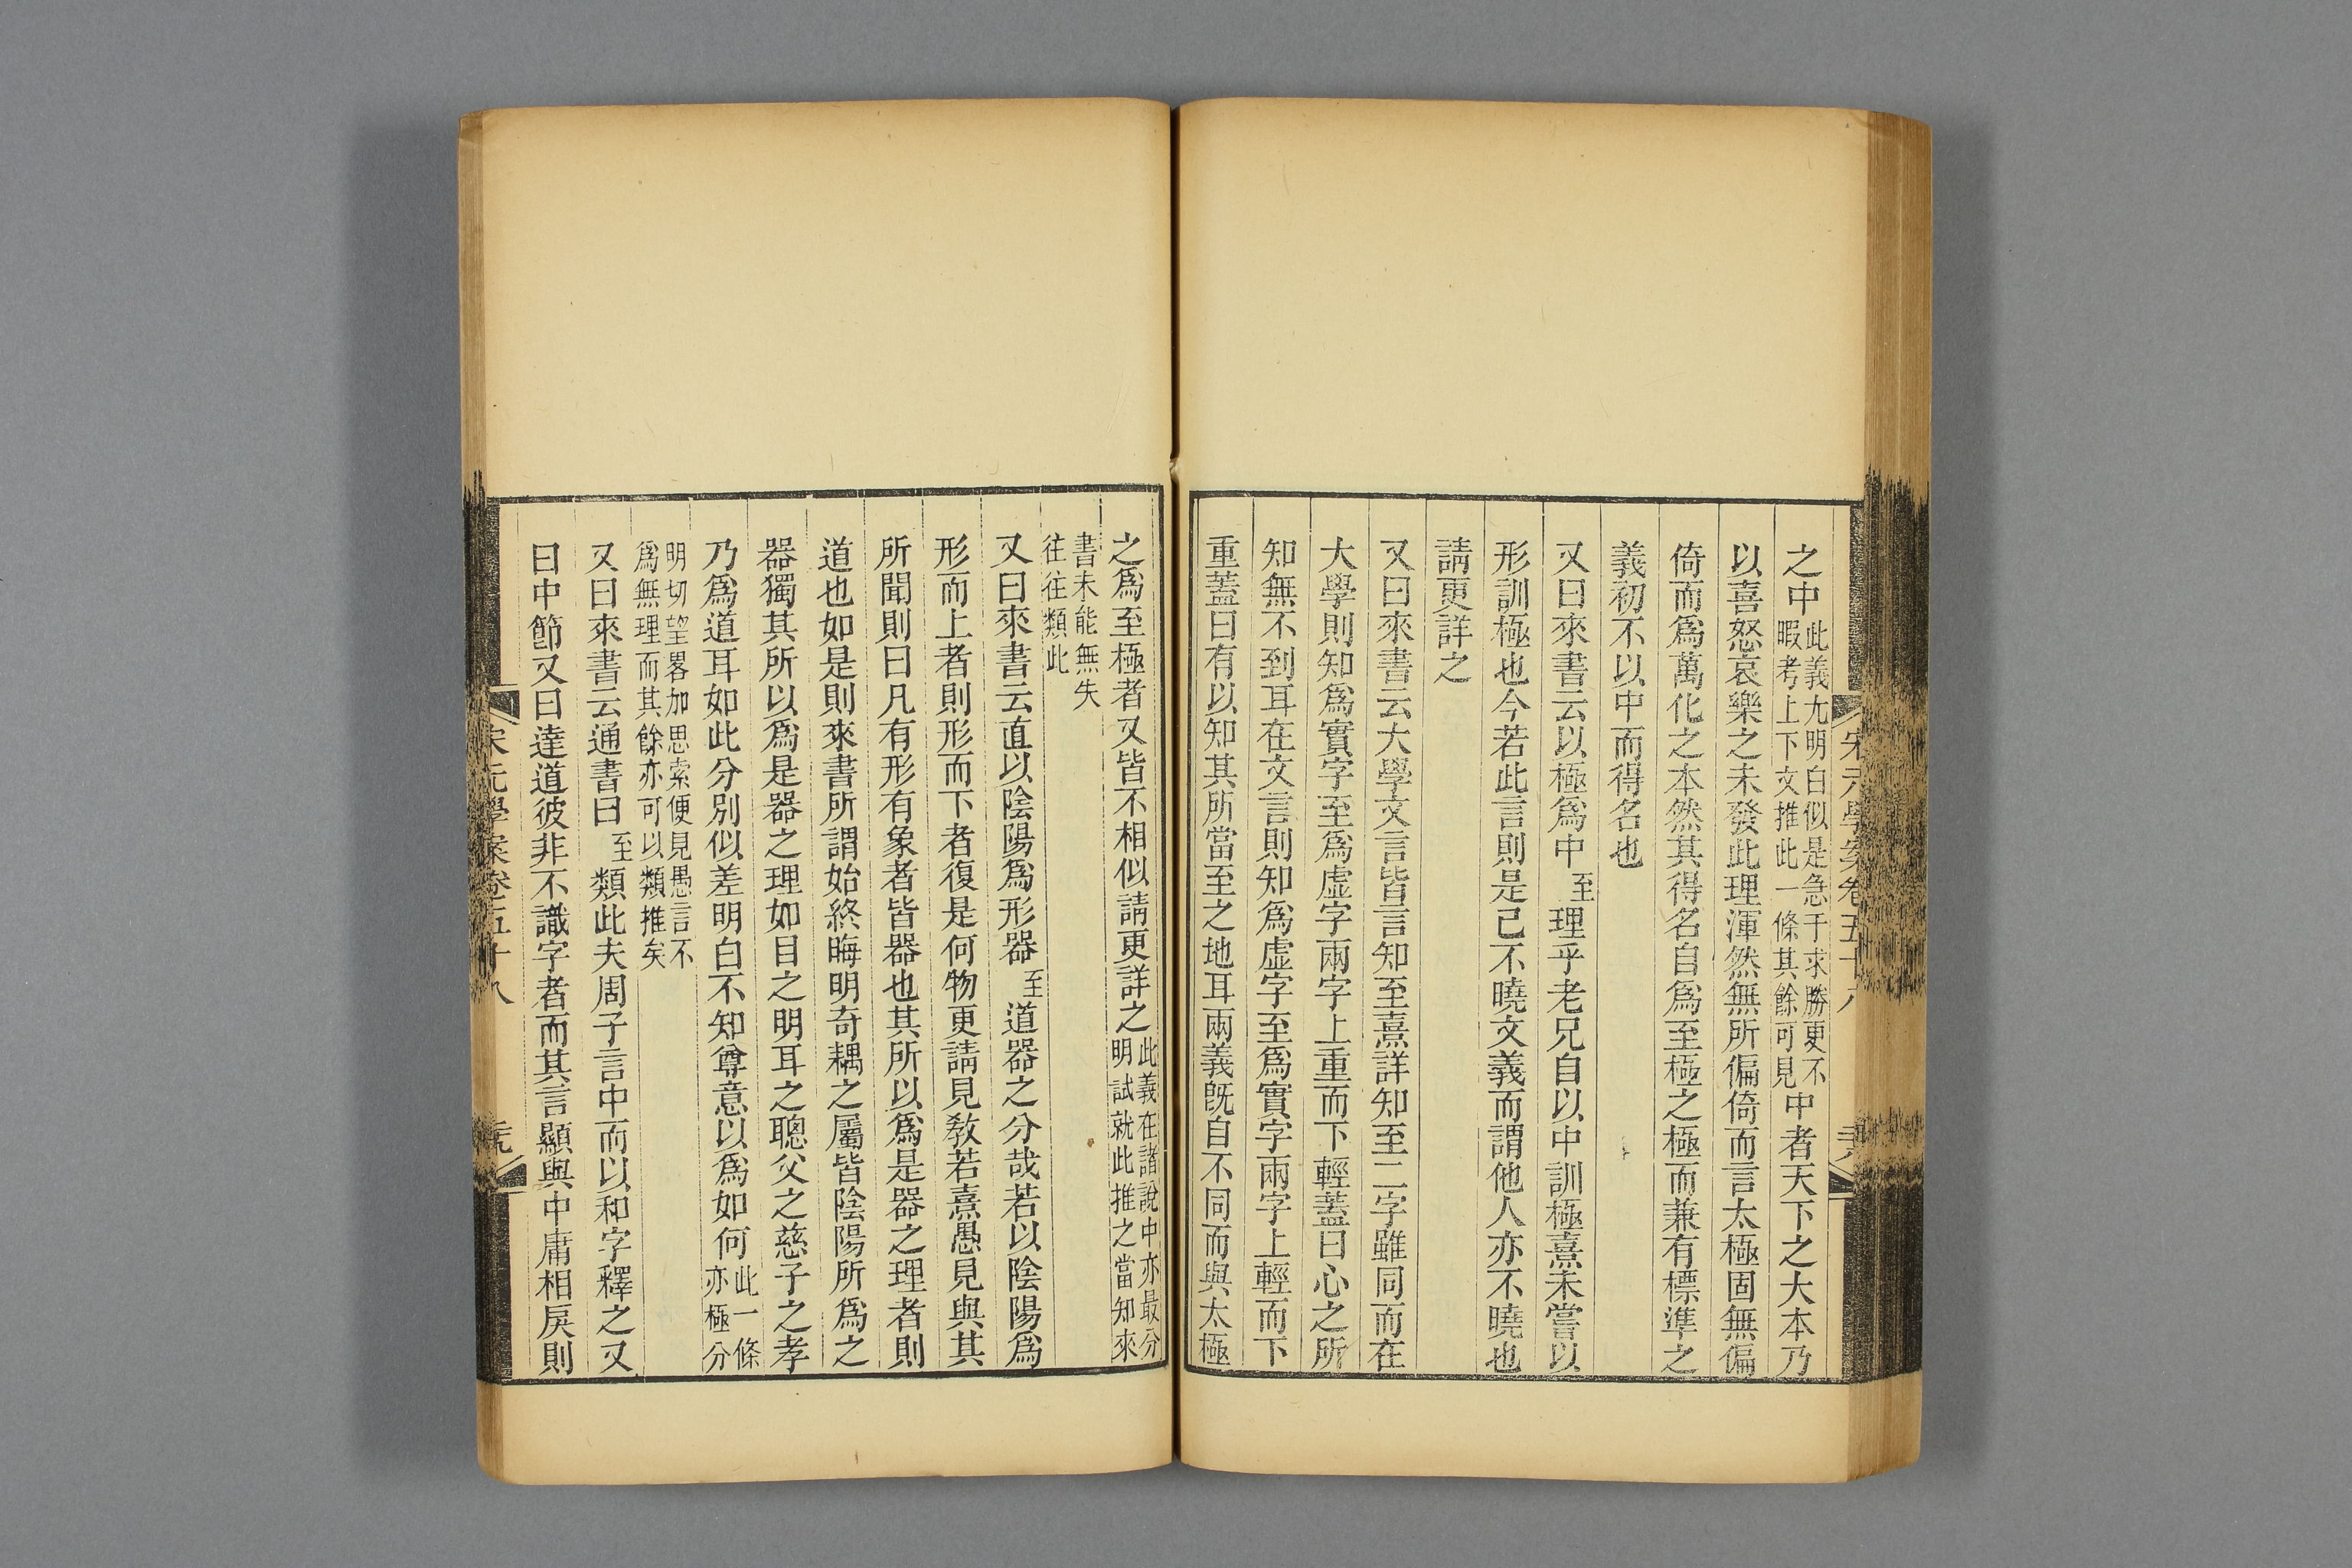 宋元學案卷五十八
之中此義尢明白似是急于求勝更不暇考上下文推此一條其餘可見中者天下之大本乃
以喜怒哀樂之未發此理渾然無所偏倚而言太極固無偏
倚而爲萬化之本然其得名自爲至極之極而兼有標準之
義初不以中而得名也
又曰來書云以極爲中至理乎老兄自以中訓極熹未嘗以
形訓極也今若此言則是己不曉文義而謂他人亦不曉也
請更詳之
又曰來書云大學文言皆言知至熹詳知至二字雖同而在
大學則知爲實字至爲虛字兩字上重而下輕蓋曰心之所
知無不到耳在文言則知爲虛字至爲實字兩字上輕而下
重蓋曰有以知其所當至之地耳兩義旣自不同而與太極
之爲至極者又皆不相似請更詳之此義在諸說中亦最分明試就此推之當知來
書未能無失往往類此
又曰來書云直以陰陽爲形器至道器之分哉若以陰陽爲
形而上者則形而下者復是何物更請見敎若熹愚見與其
所聞則曰凡有形有象者皆器也其所以爲是器之理者則
道也如是則來書所謂始終晦明奇耦之屬皆陰陽所爲之
器獨其所以爲是器之理如目之明耳之聰父之慈子之孝
乃爲道耳如此分別似差明白不知尊意以爲如何此一條亦極分
明切望畧加思索便見愚言不爲無理而其餘亦可以類推矣
又曰來書云通書曰至類此夫周子言中而以和字釋之又
曰中節又曰達道彼非不識字者而其言顯與中庸相戾則
宋元學案卷五十八